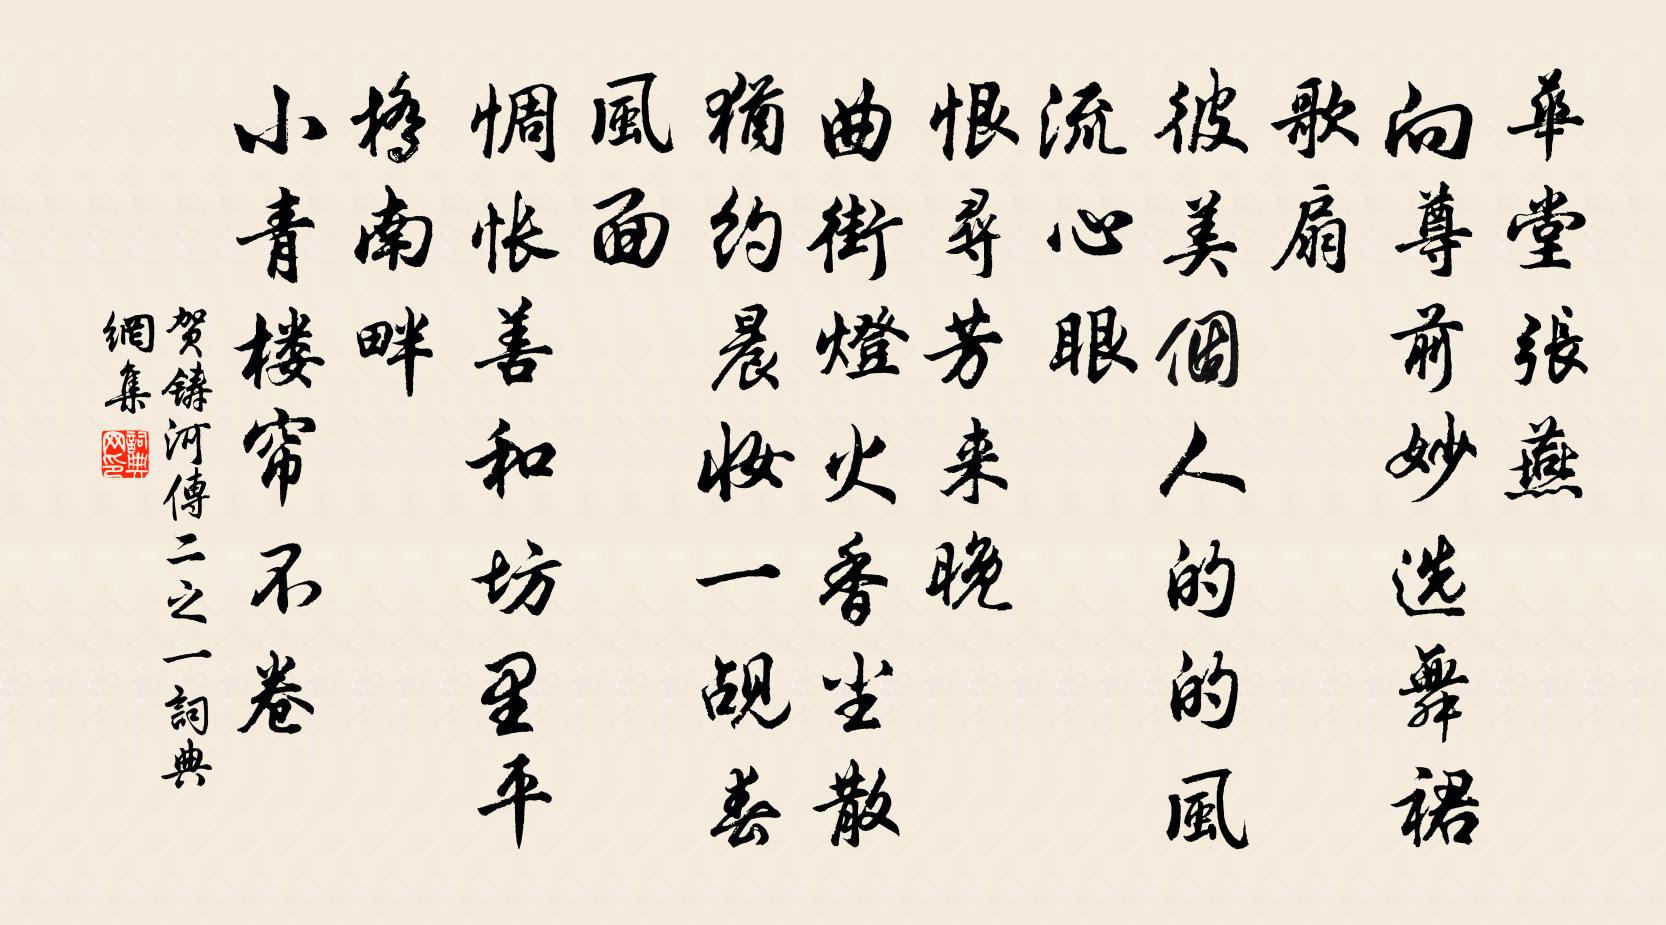 華堂張燕
向尊前妙选舞裙
歌扇
彼美個人的的風
流心眼
恨尋芳来晚
曲街燈火香尘散
猶约晨妆一觇春
風面
惆怅善和坊里平
橋南畔
小青楼帘不卷
贺鑄河傳二之一詞典
網集
詞典网印